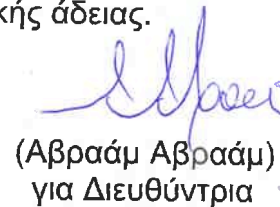 κής άδειας.
(Αβραάμ Αβραάμ)
για Διευθύντρια